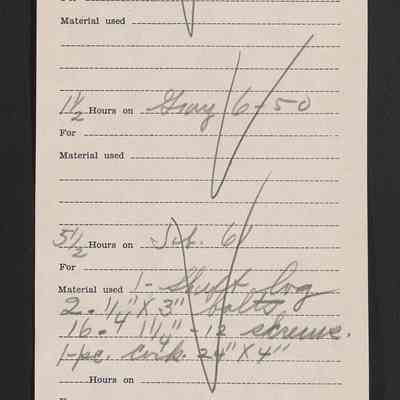 Material used
1½ Hours on Gray 6-50
For
Material used
5½ Hours on 61
For
Material used 1- Shift Log
2. ¼" X 3" bolts
16. 1¼" - 12 screws.
1-pc. cork. 24" X 4"
Hours on